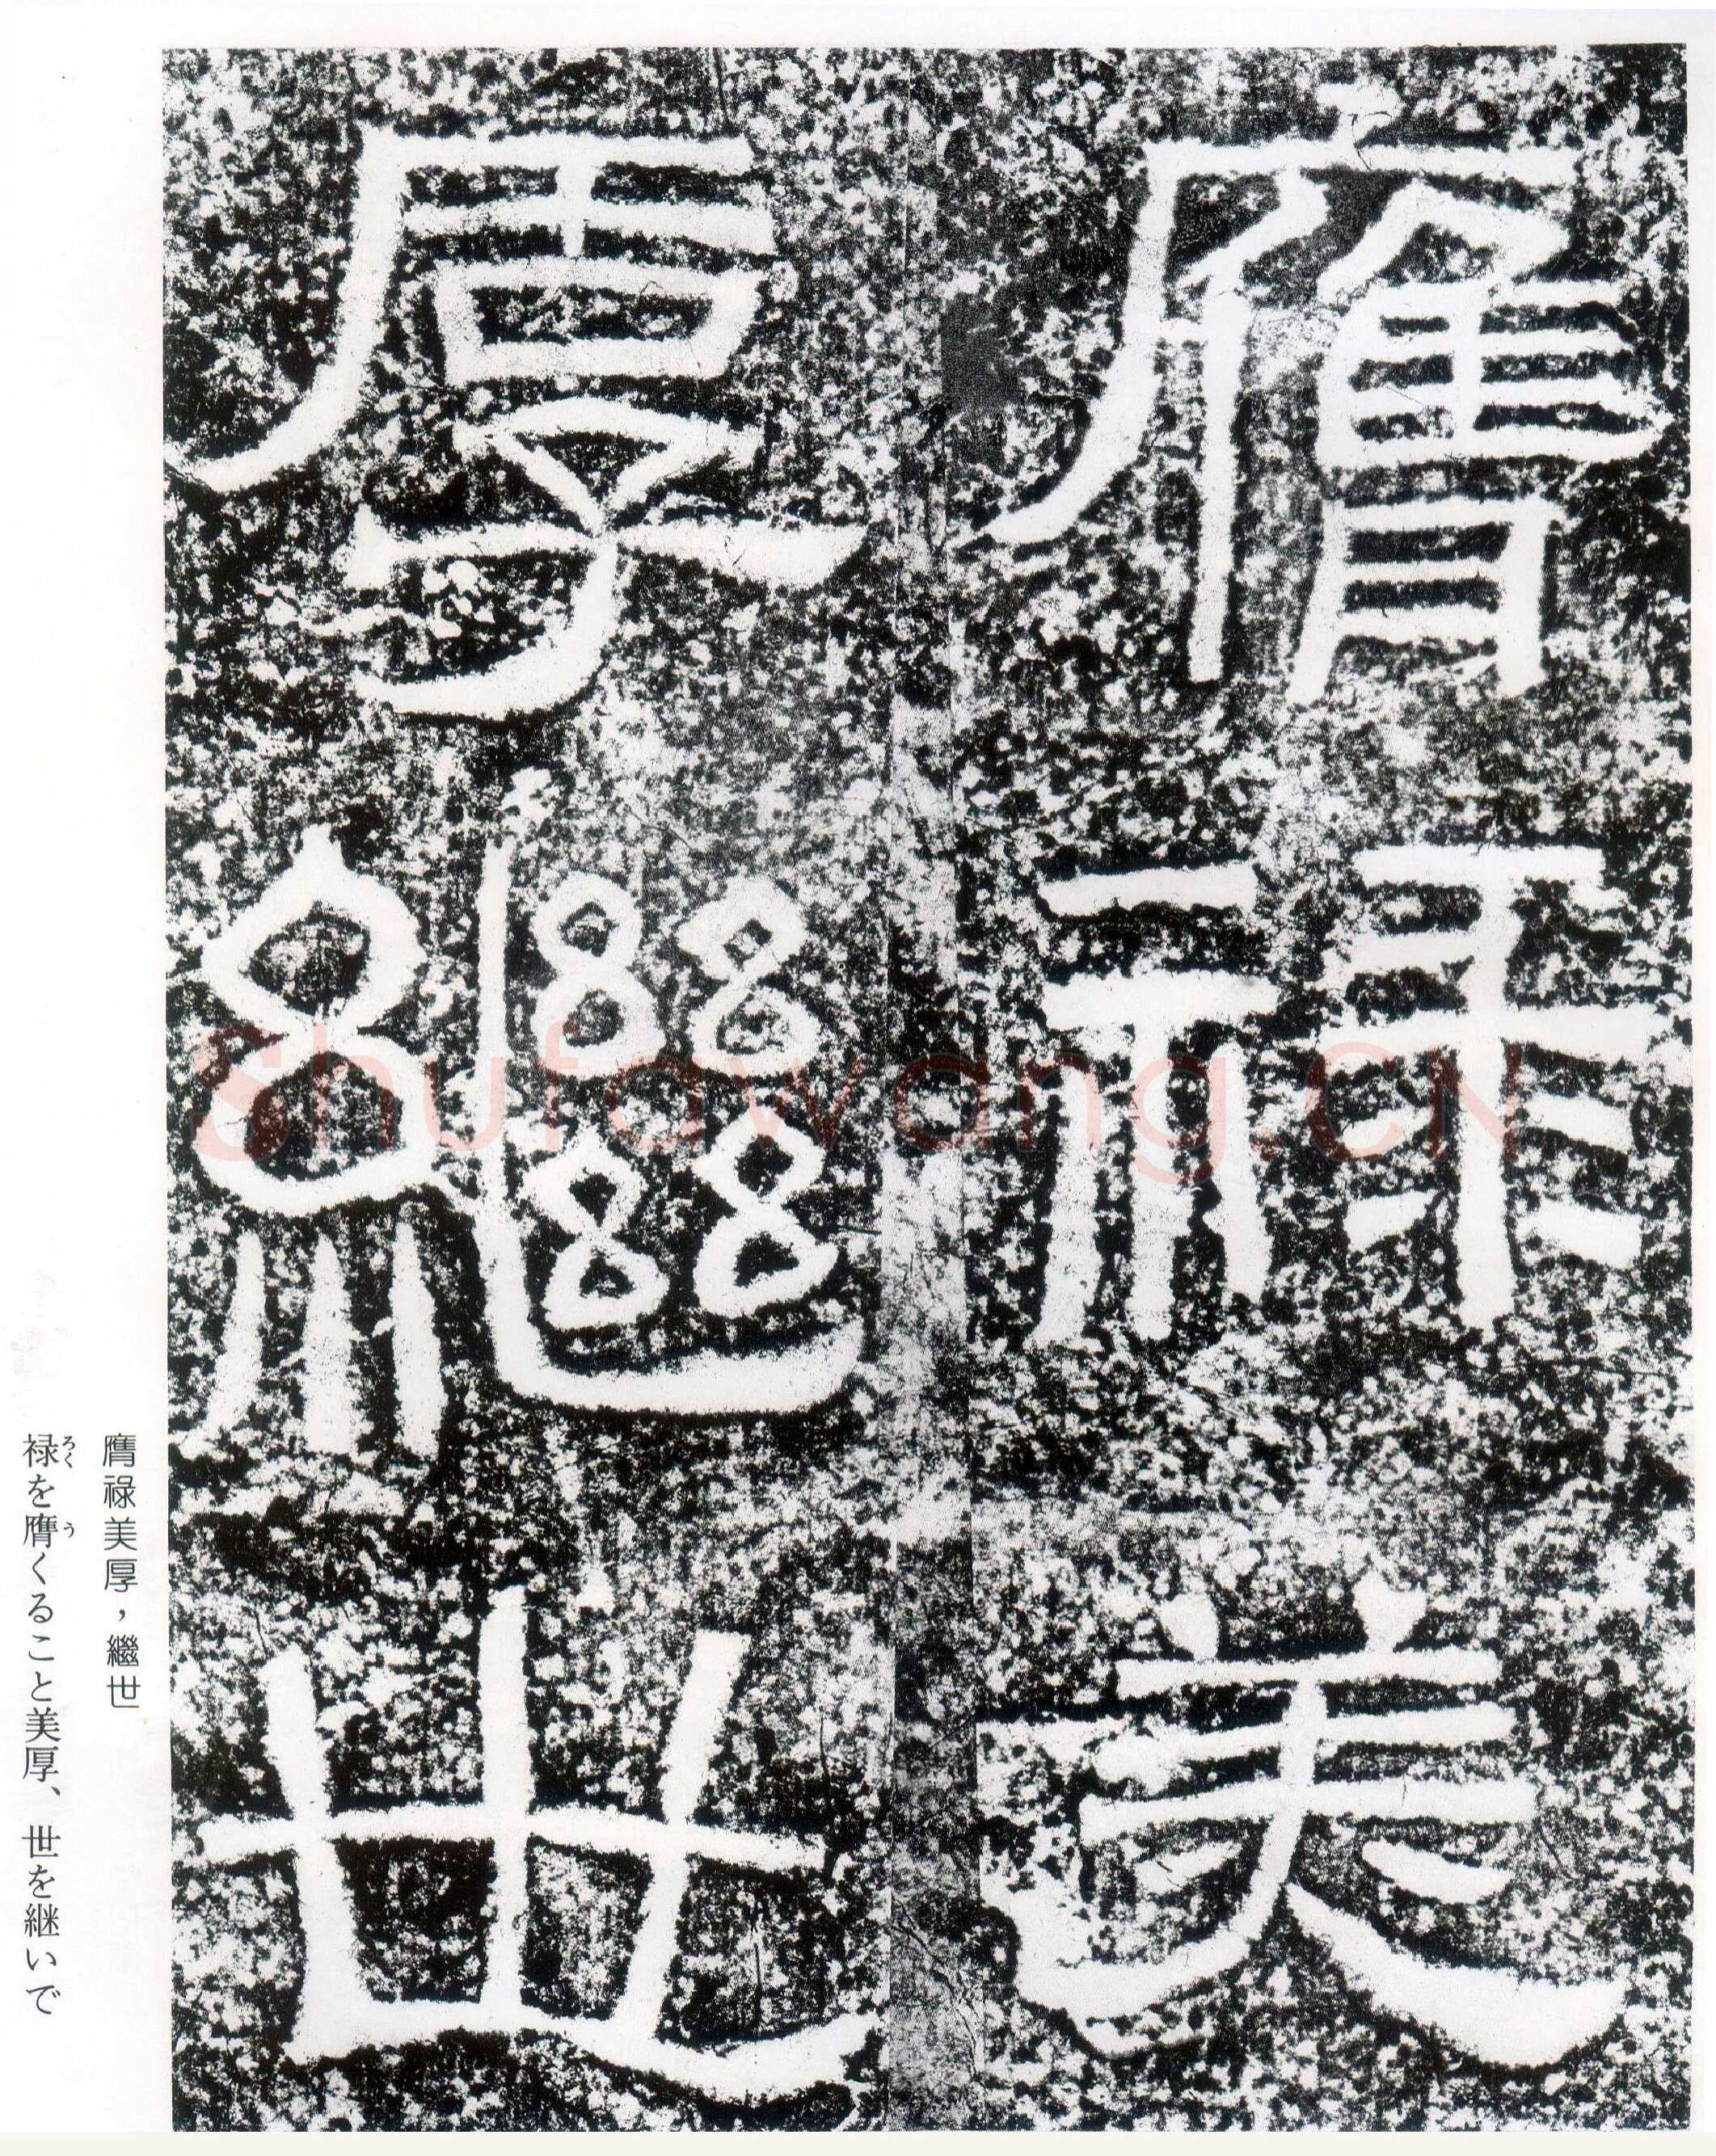 膺祿美
厚繼世
膺祿美厚，繼世
禄を膺くること美厚、世を継いで
ろく
う
Shufawang.CN